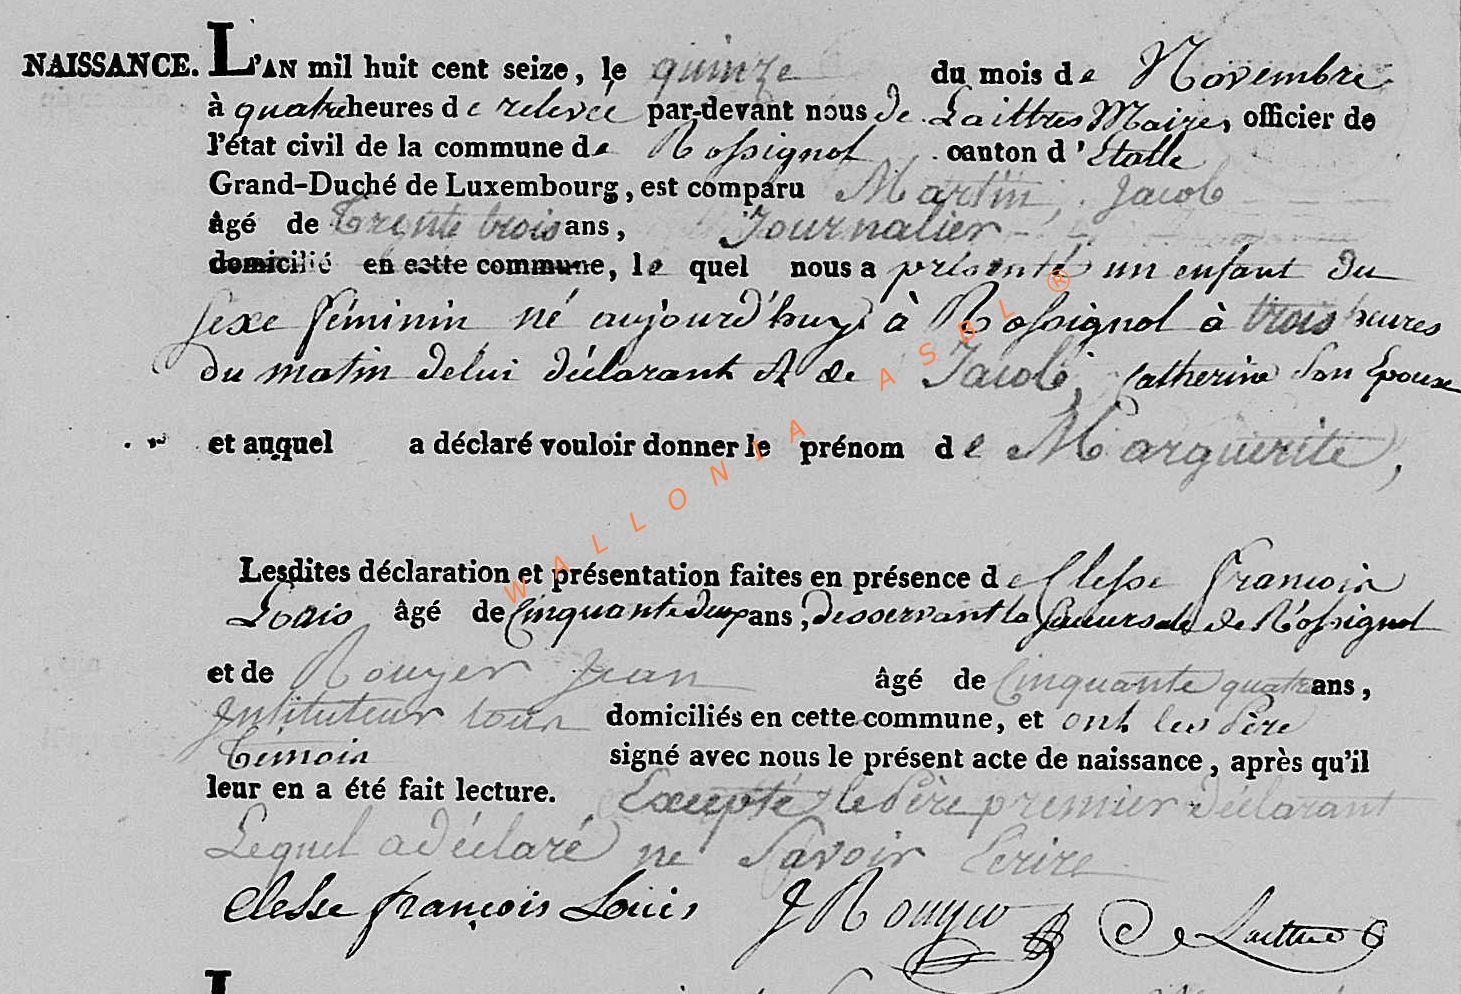 NAISSANCE. L'AN mil huit cent seize, le quinze du mois de Novembre
à quatre heures de relevée par-devant nous de Laittres Maire, officier de
l'état civil de la commune de Rossignol canton d'Etalle
Grand-Duché de Luxembourg, est comparu Martin, Jacob
âgé de trente trois ans, Journalier
domicilié en cette commune, le quel nous a présenté un enfant du
sexe féminin né aujourd'huy à Rossignol à trois heures
du matin de lui déclarant et de Jacob, Catherine Son Epouse
et auquel a déclaré vouloir donner le prénom de Marguerite,
Lesdites déclaration et présentation faites en présence de Clesse François
Louis âgé de Cinquante deux ans, desservant la Succursale de Rossignol
et de Rouyer Jean âgé de Cinquante quatre ans,
Instituteur tous domiciliés en cette commune, et ont les Père
témoin signé avec nous le présent acte de naissance, après qu'il
leur en a été fait lecture. Excepté le Père premier déclarant
Lequel a déclaré ne Savoir Ecrire
Clesse françois Louis J Rouyer De Laittre
WALLONIA ASBL ®